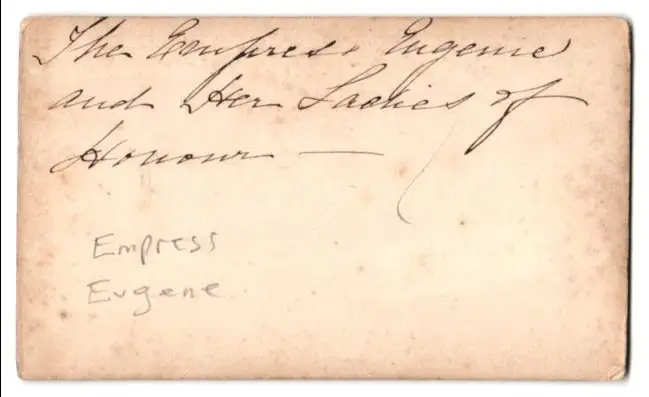 The Empress Eugenie
and Her Ladies of
Honour —
Empress
Eugene